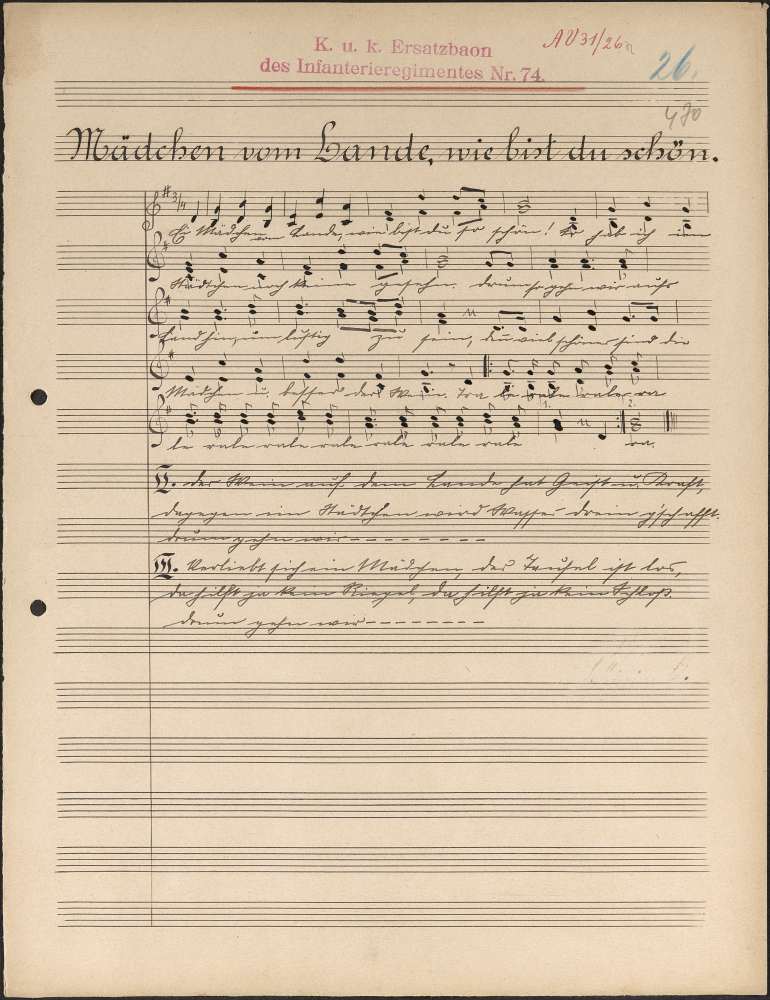 K. u. k. Ersatzbaon
AV31/26a
des Infanterieregimentes Nr. 74.
26.
470
Mädchen vom Lande, wie bist du schön.
3/4
Ei Mädchen vom Lande, wie bist du so schön! So hab ich im
Städtchen noch keine gesehn. drum so gehn wir aufs
Land hin, um lustig zu sein, die viel schöner sind die
Mädchen u. besser der Wein. Tra la rala rala ra
la rala rala rala rala rala rala ra.
1. 2.
II. Der Wein auf dem Lande hat Geist u. Kraft,
dagegen im Städtchen wird Wasser drein g'schafft.
drum gehn wir - - - - - - - -
III. Verliebt sich ein Mädchen, der Teufel ist los,
da hilft ja kein Riegel, da hilft ja kein Schloß.
drum gehn wir - - - - - - - -